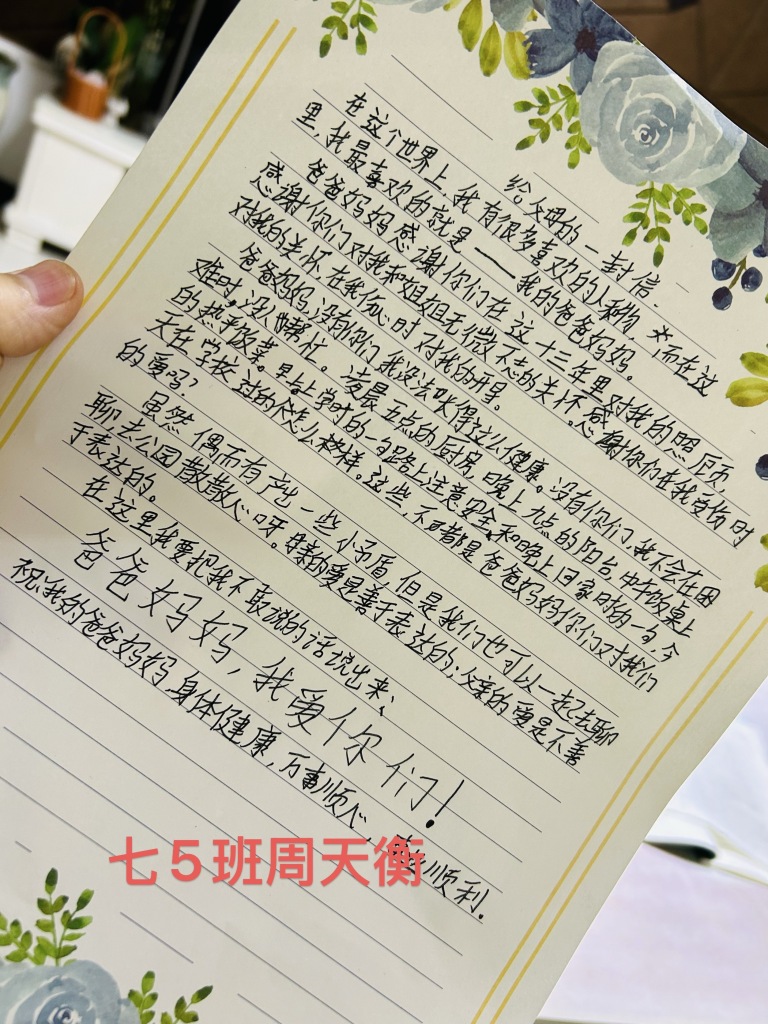 给父母的一封信
在这个世界上,我有很多喜欢的人和物,而在这
里,我最喜欢的就是——我的爸爸妈妈。
爸爸妈妈感谢你们在这十三年里对我的照顾
感谢你们对我和姐姐无微不志的关怀感谢你们在我受伤时
对我的关怀在我伤心时对我的开导。
爸爸妈妈,没有你们,我没法吃得这么健康。没有你们,我不会在困
难时,没人帮忙。凌晨五点的厨房,晚上九点的阳台,中午饭桌上
的热乎饭菜。早上上学时的一句路上注意安全和晚上回家时的一句,今
天在学校过的怎么样。这些,不都是爸爸妈妈你们对我们
的爱吗?
虽然偶而有产出一些小矛盾,但是我们也可以一起去聊
聊,去公园散散心呀。母亲的爱是善于表达的;父亲的爱是不善
于表达的。
在这里我要把我不敢说的话说出来、
爸爸妈妈,我爱你们!
祝:我的爸爸妈妈,身体健康,万事顺心,顺利.
七5班周天衡